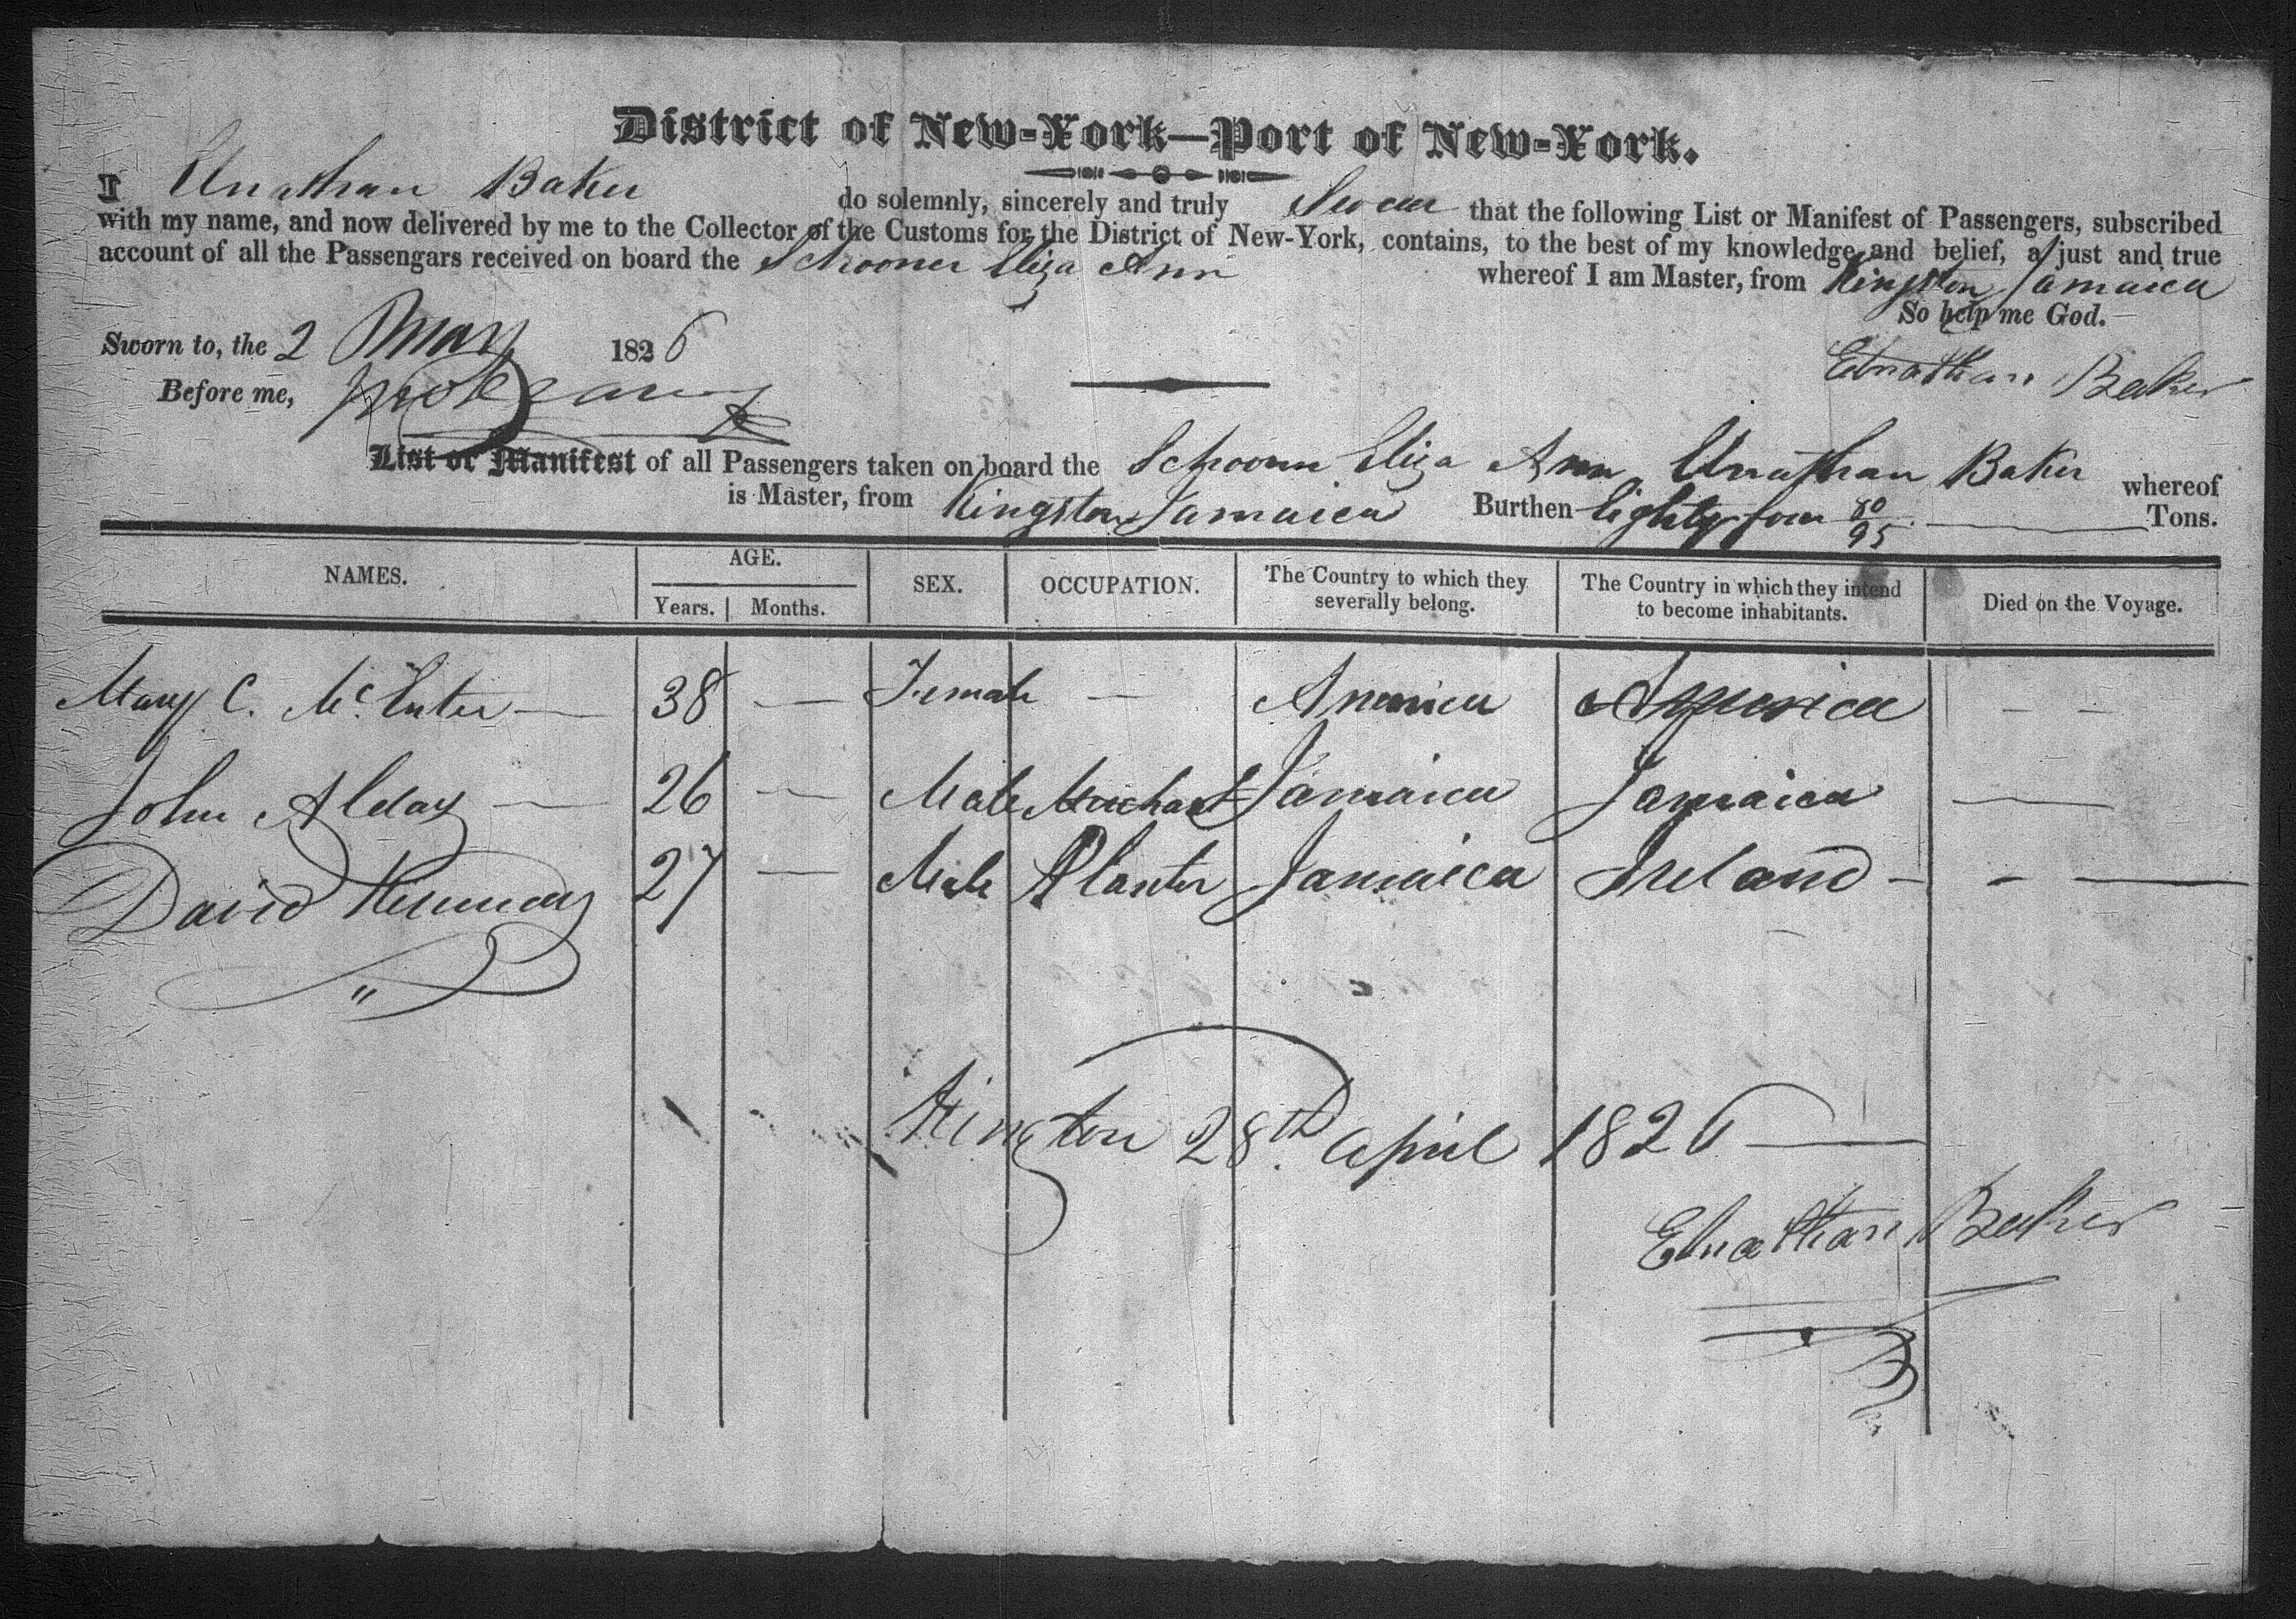 District of New-York—Port of New-York.
I Elnathan Baker do solemnly, sincerely and truly Swear that the following List or Manifest of Passengers, subscribed
with my name, and now delivered by me to the Collector of the Customs for the District of New-York, contains, to the best of my knowledge and belief, a just and true
account of all the Passengars received on board the Schooner Eliza Ann whereof I am Master, from Kingston Jamaica
So help me God.
Sworn to, the 2 May 1826
Elnathan Baker
Before me,
List or Manifest of all Passengers taken on board the Schooner Eliza Ann Elnathan Baker whereof
is Master, from Kingston Jamaica Burthen Eighty four 80/95 Tons.
NAMES. AGE. SEX. OCCUPATION. The Country to which they severally belong. The Country in which they intend to become inhabitants. Died on the Voyage.
Years. Months.
Mary C. 38 — Female — America America — —
John Alday — 26 — Male Merchant Jamaica Jamaica —
David 27 — Male Planter Jamaica Ireland — - —
Kingston 28th April 1826
Elnathan Baker